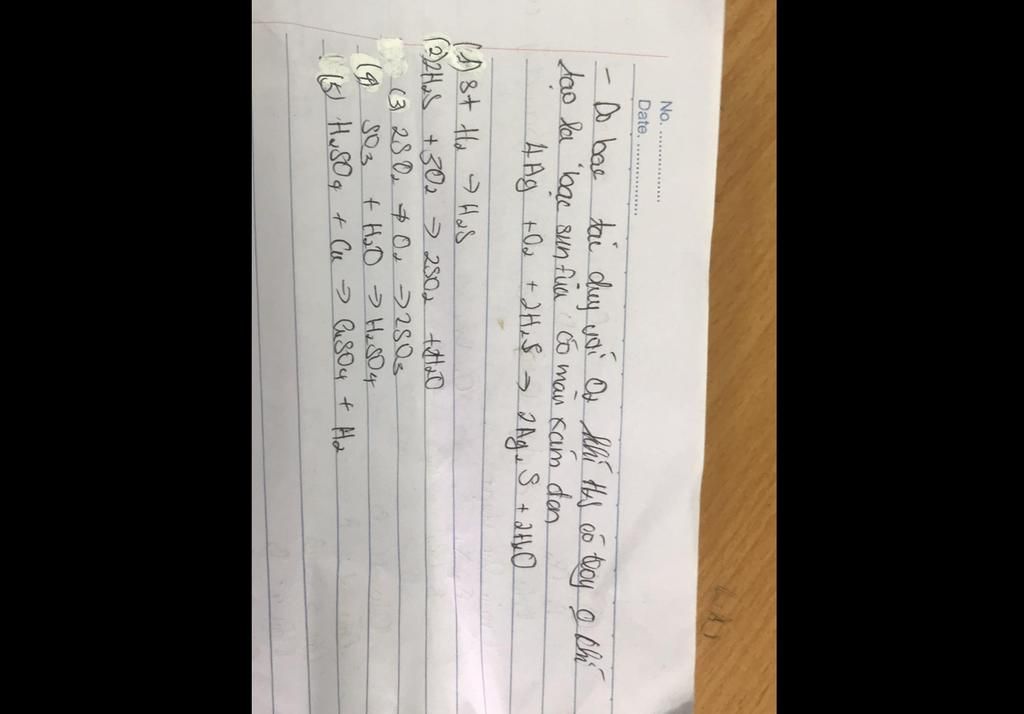 No. ..................
Date. ..................
- Do bạc tác dụng với O2 khí H2S có trong o khí
tạo ra bạc sunfua có màu xám đen
4Ag + O2 + 2H2S → 2Ag2S + 2H2O
(1) S + H2 → H2S
(2) 2H2S + 3O2 → 2SO2 + 2H2O
(3) 2SO2 + O2 → 2SO3
(4) SO3 + H2O → H2SO4
(5) H2SO4 + Cu → CuSO4 + H2